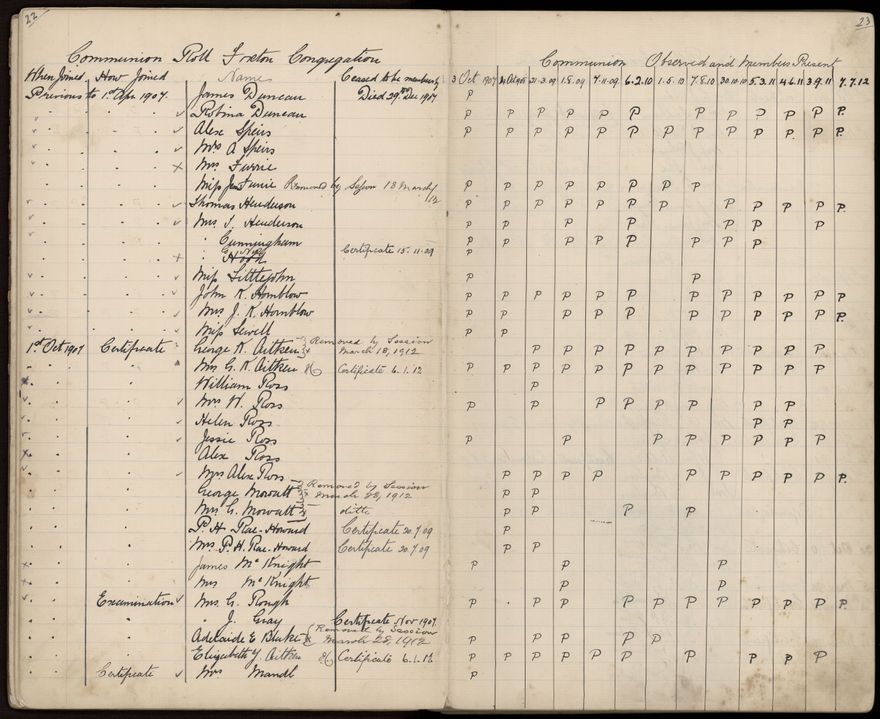 22
23
Communion Roll Foxton Congregation
Communion Observed and Members Present
When Joined How Joined Names Ceased to be member
3 Oct 1907 31.3.09 1.8.09 7.11.09 6.2.10 1.5.10 7.8.10 30.10.10 5.3.11 4.6.11 3.9.11 7.7.12
Previous to 1st Apr 1907. James Duncan Died 29th Dec 1907 P
Robina Duncan P P P P P P P P P P P P
Alex Speirs P P P P P P P P P P P P P
Mrs A Speirs
Mrs Furrie
Miss Furrie Removed by Session 13 March/12 P P P P P P P P
Thomas Henderson P P P P P P P P P P P P
Mrs T. Henderson P P P P P P P
" Cunningham P P P P P P P P
" Certificate 15.11.09 P
Miss Littlejohn P P
John K. Hornblow P P P P P P P P P P P P
Mrs J. K. Hornblow P P P P P P P P P P
Miss Sewell P P
1st Oct 1907 Certificate George K. Aitken Removed by Session March 13, 1912 P P P P P P P P P P
Mrs G. K. Aitken Certificate 6.1.12 P P P P P P P P P P P P
William Ross P
Mrs W. Ross P P P P P P P P
Helen Ross P P
Jessie Ross P P P P P P P P
Alex Ross
Mrs Alex Ross P P P P P P P P P P
George Mowatt Removed by Session March 1912 P P
Mrs G. Mowatt ditto P P P P
P. H. Rae-Howard Certificate 20.7.09 P
Mrs. P. H. Rae-Howard Certificate 20.7.09 P P
James McKnight P P P
Mrs McKnight P P
Examination Mrs. G. Rough P P P P P P P P P P P
" J. Gray Certificate Nov 1907
Adelaide E Blake Removed by Session March 1912 P P P P P
Elizabeth Y. Aitken Certificate 6.1.12 P P P P P P P P P P
Certificate Mrs Mandl P